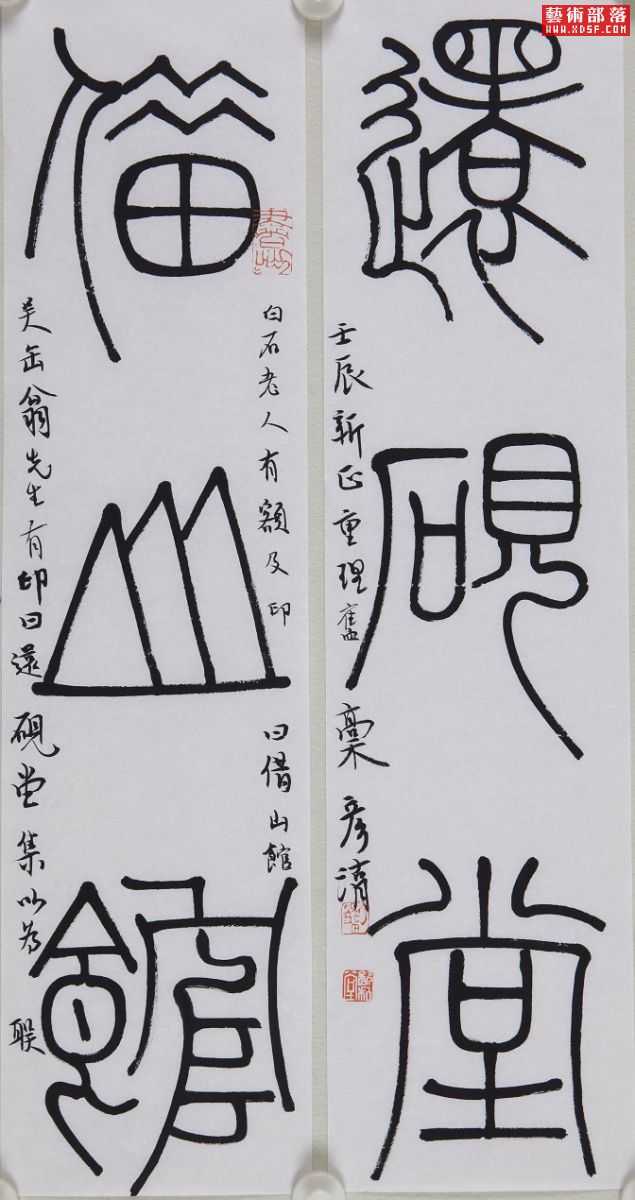 藝術部落
WWW.XDSF.COM
還硯堂
壬辰新正重理舊稾彦清
借山館
白石老人有額及印曰借山館
吴缶翁先生有印曰還硯堂集以為聯